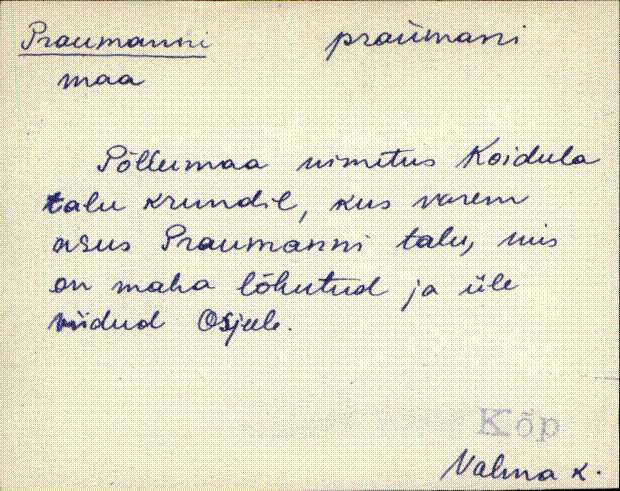 Praumanni praumani
maa
Põllumaa nimetus Koidula
talu krundil, kus varem
asus Praumanni talu, mis
on maha lõhutud ja üle
viidud Osjule.
Kõp
Valma k.